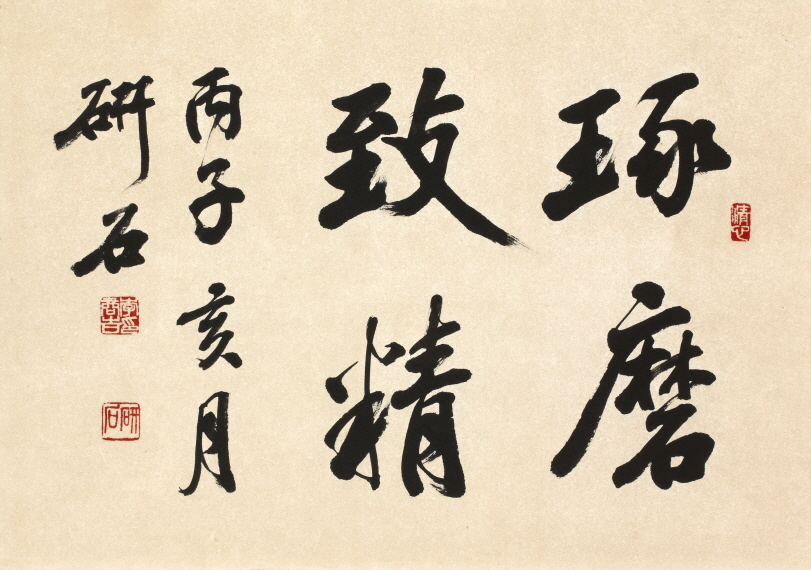 琢磨
致精
丙子亥月
研石
研石